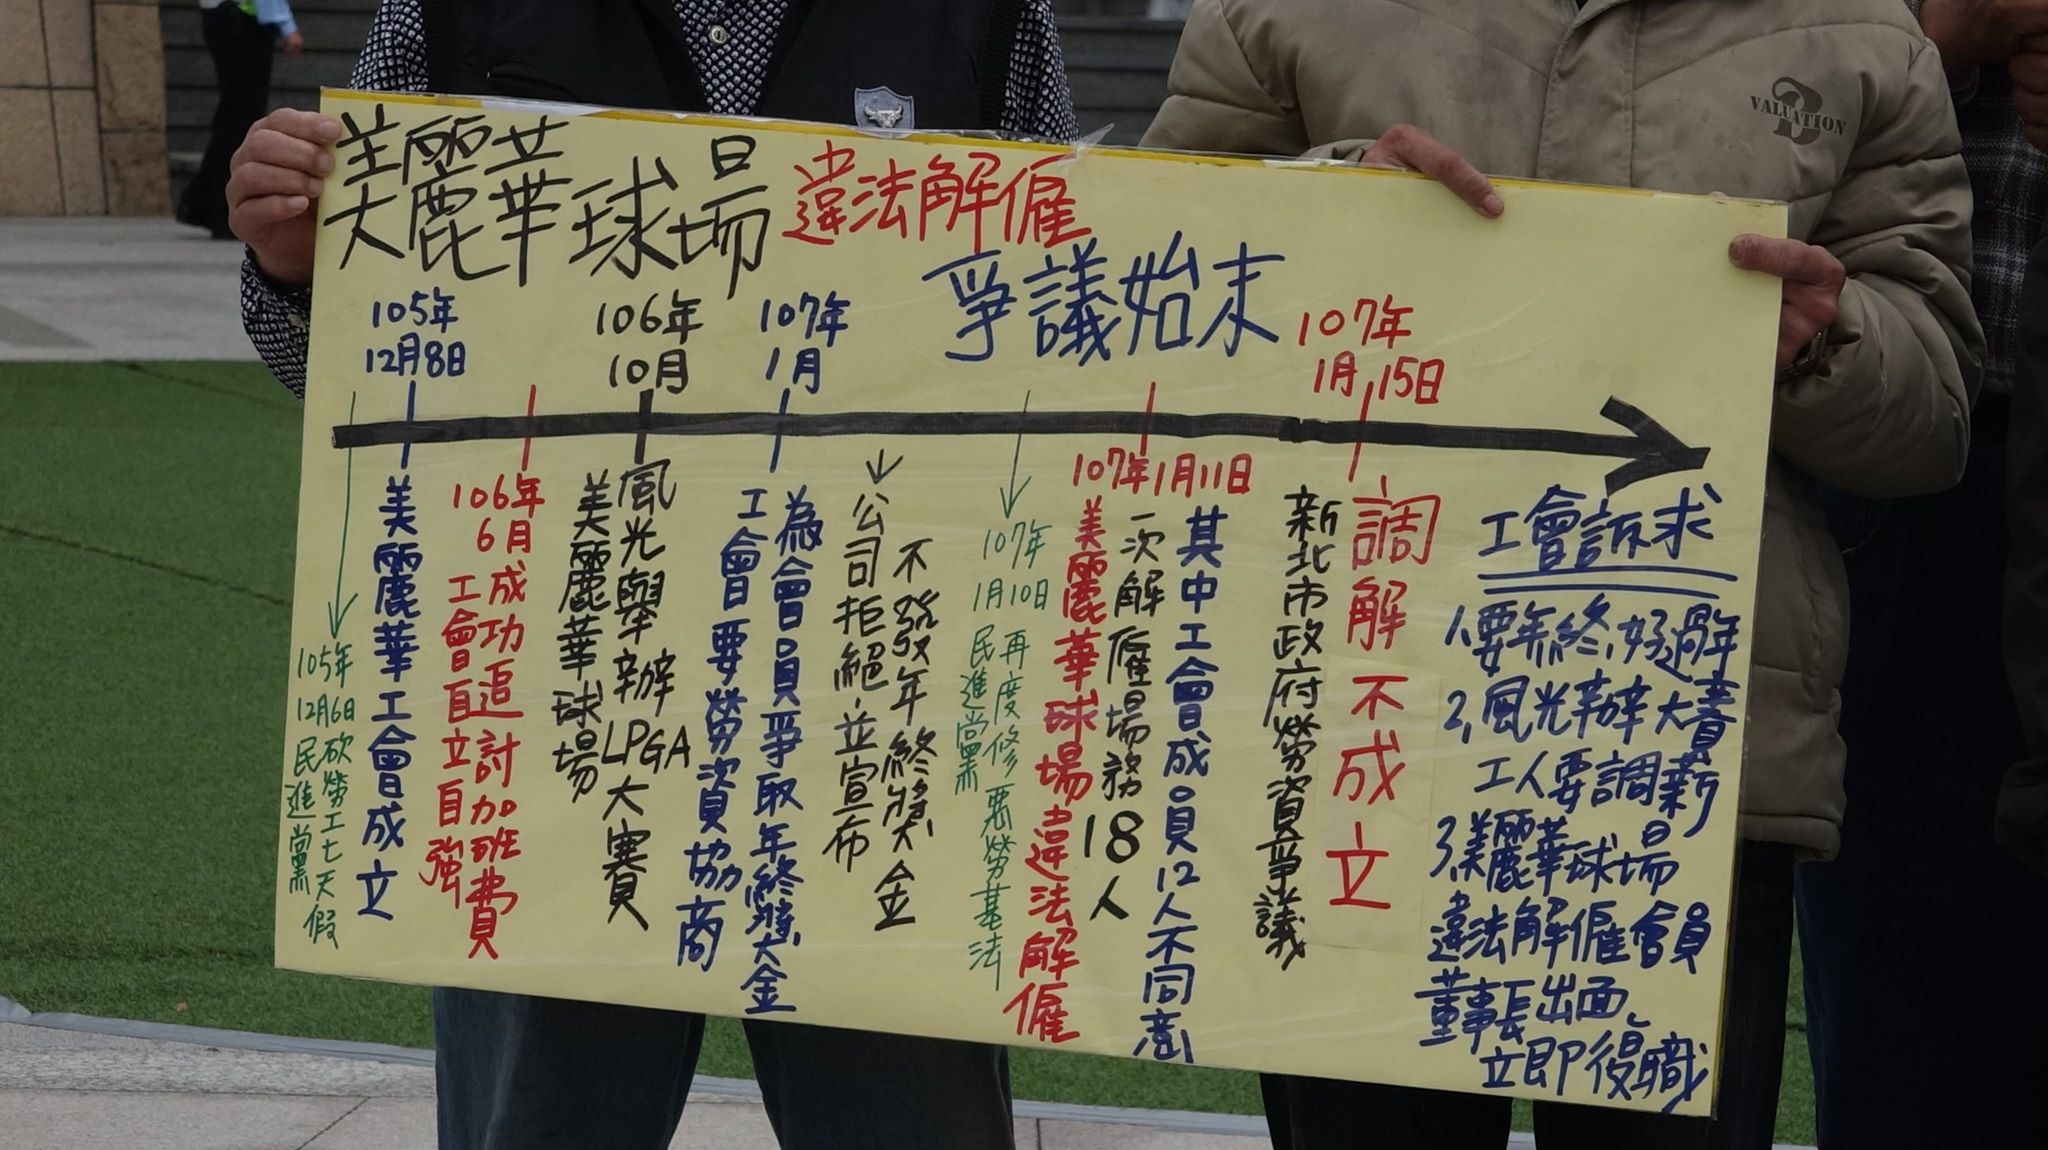 美麗華球場 違法解僱
爭議始末
105年
12月6日
民進黨
砍勞工七天假
105年
12月8日
美麗華工會成立
106年
6月
工會自立自強
成功追討加班費
106年
10月
美麗華球場
風光舉辦LPGA大賽
107年
1月
工會要勞資協商
為會員爭取年終獎金
公司拒絕、並宣布
不發年終獎金
107年
1月10日
民進黨
再度修惡勞基法
107年1月11日
美麗華球場違法解僱
一次解僱場務18人
其中工會成員12人不同意
107年
1月15日
新北市政府勞資爭議
調解不成立
工會訴求
1、要年終、好過年
2、風光辦大賽
工人要調薪
3、美麗華球場
違法解僱會員
董事長出面、
立即復職
VALUATION